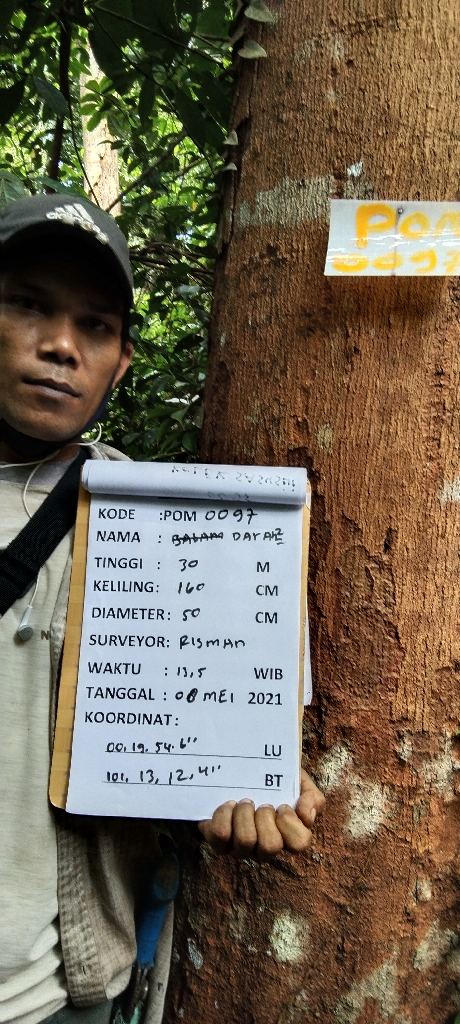 adidas
POM
0097
KODE :POM 0097
NAMA : BALAM DARAH
TINGGI : 30 M
KELILING: 160 CM
DIAMETER: 50 CM
SURVEYOR: RISMAN
WAKTU : 13,5 WIB
TANGGAL : 08 MEI 2021
KOORDINAT:
00, 19, 54.6" LU
101, 13, 12,41" BT